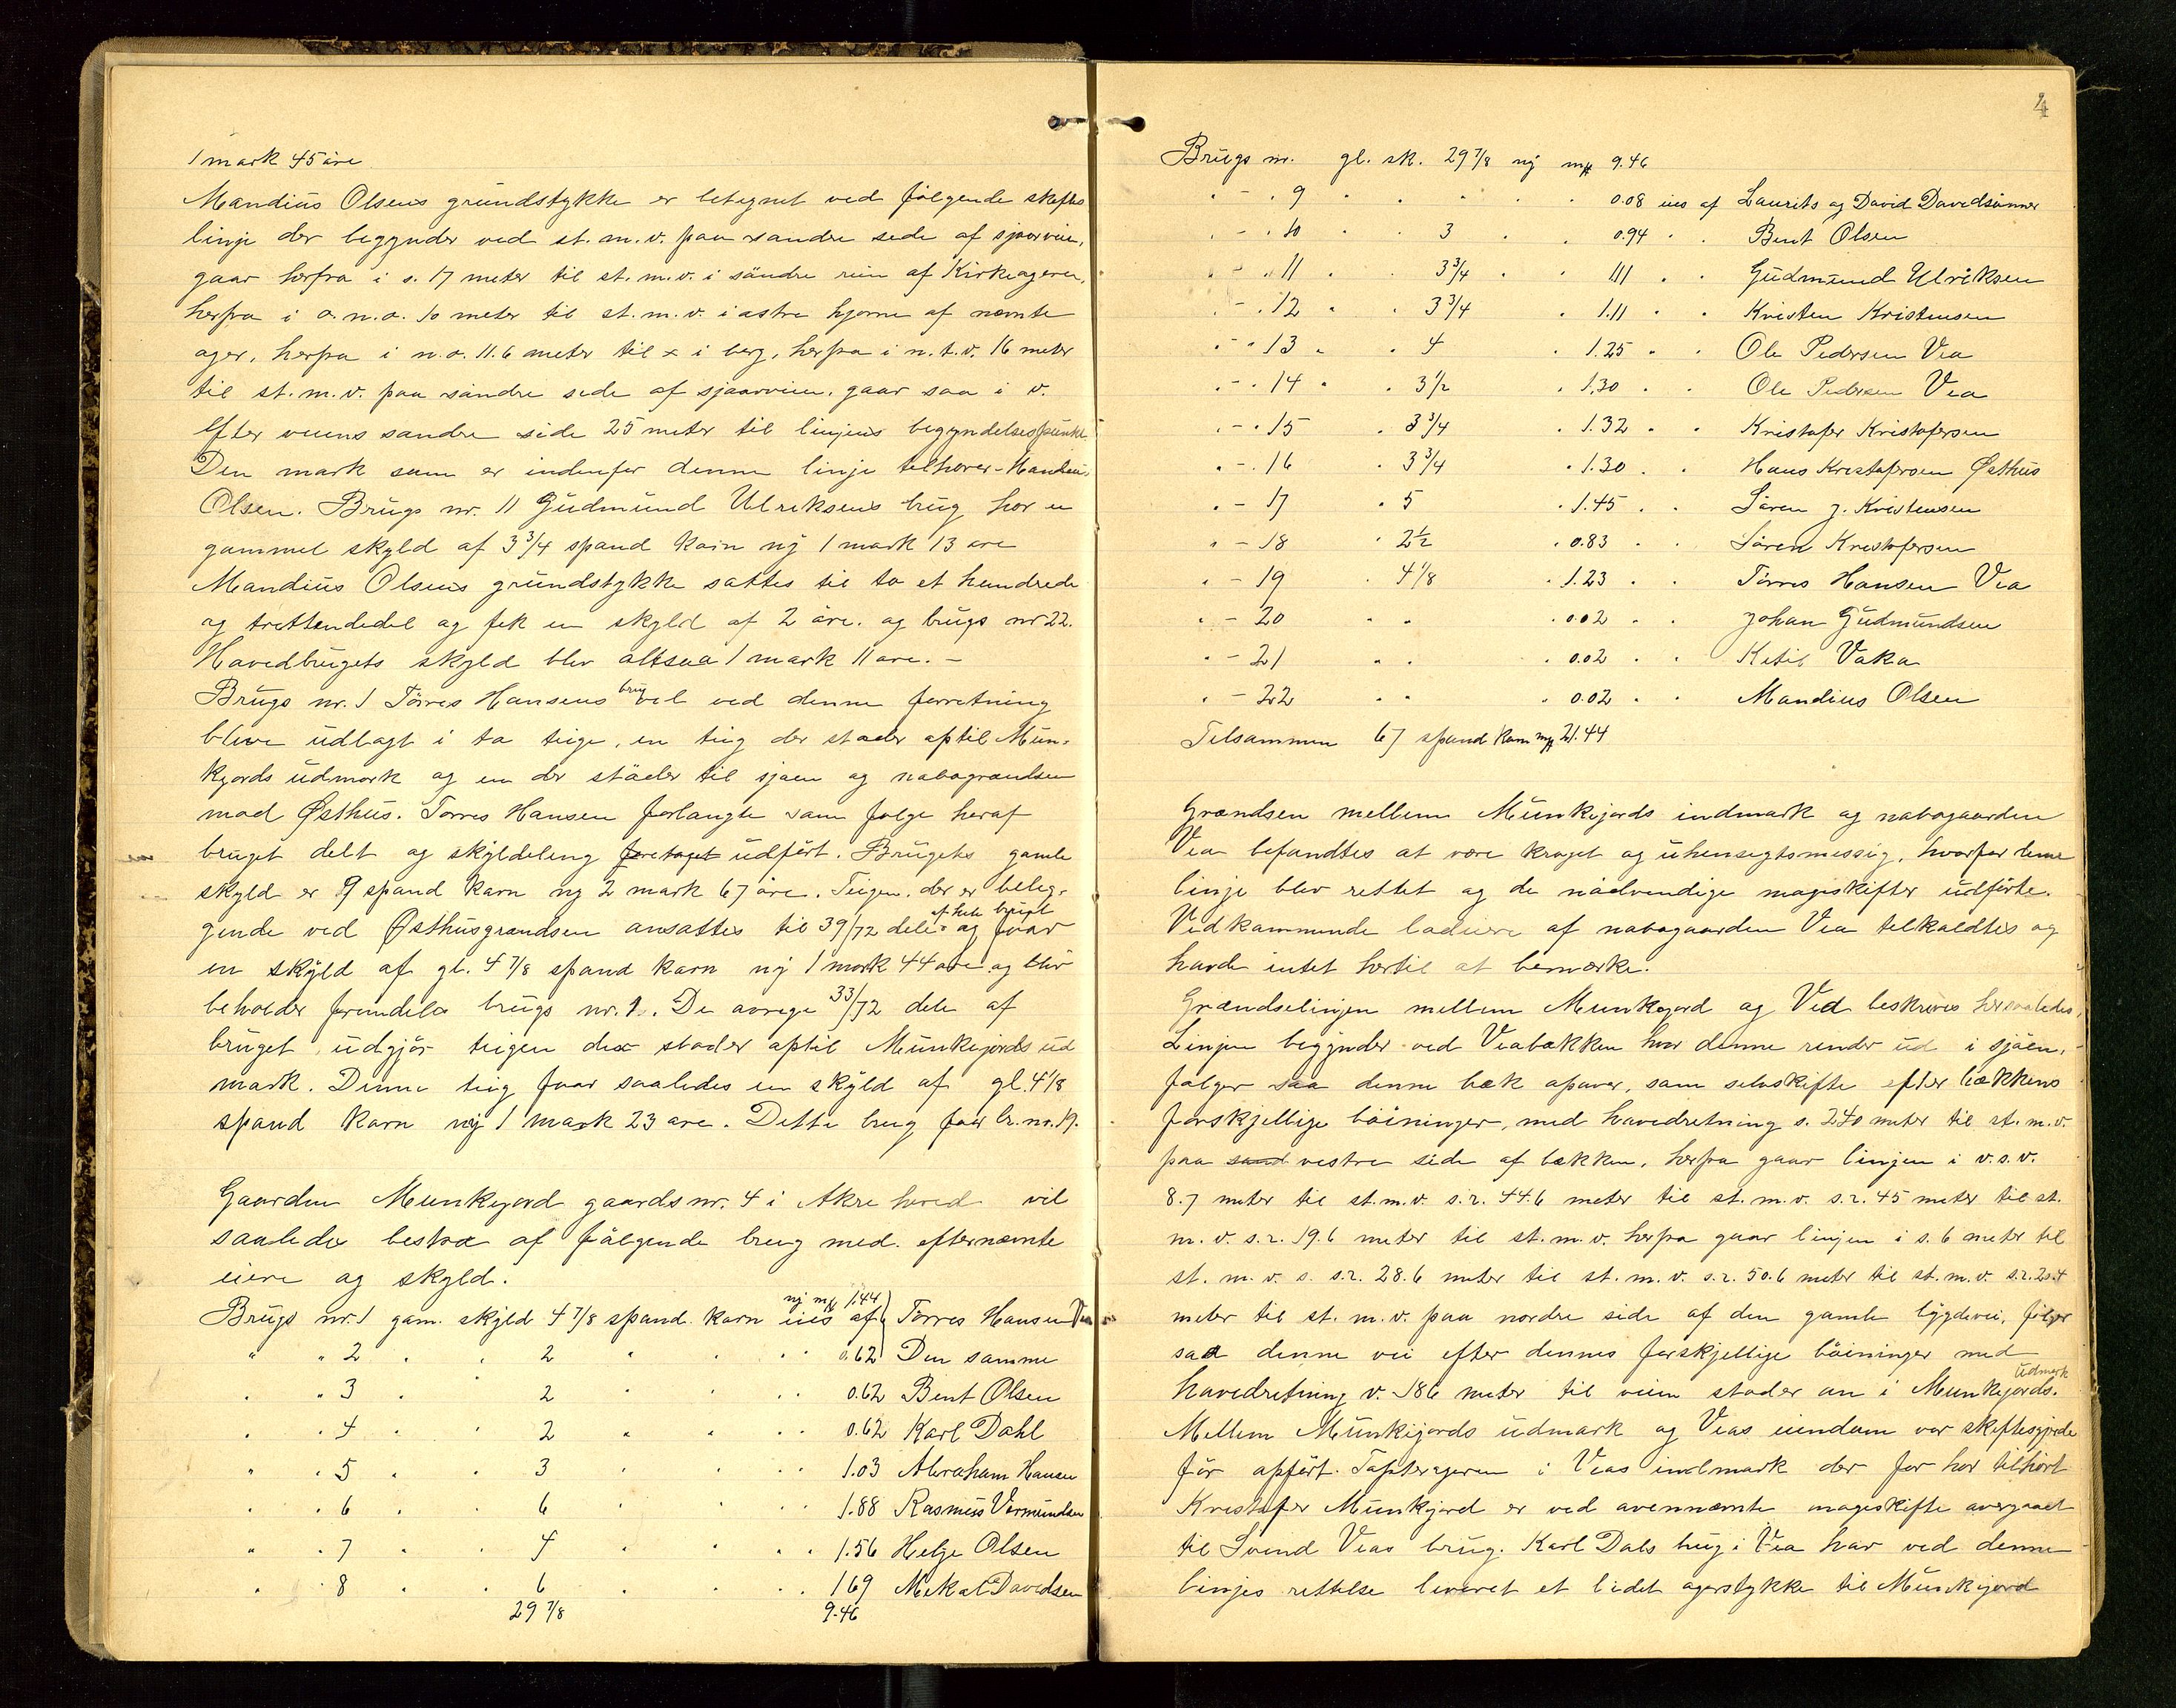 1 mark 45 øre
Mandius Olsens grundstykke er betegnet ved følgende skiftes
linje der begynder ved st. m. v. paa søndre side af sjøveien,
gaar herfra i s. 17 meter til st. m. v. i søndre rein af Kirkeageren,
herfra i o. n. o. 10 meter til st. m. v. i østre hjørne af nævnte
ager, herfra i n. o. 11.6 meter til x i berg, herfra i n. t. v. 16 meter
til st. m. v. paa søndre side af sjøveien, gaar saa i v.
efter veiens søndre side 25 meter til linjens begyndelsespunkt.
Den mark som er indenfor denne linje tilhører Mandius
Olsen. Brugs nr. 11 Gudmund Ulriksens brug har en
gammel skyld af 3 3/4 spand korn ny 1 mark 13 øre
Mandius Olsens grundstykke sattes til to et hundrede
og trettendedel og fek en skyld af 2 øre. og brugs nr 22.
Hovedbrugets skyld blev altsaa 1 mark 11 øre. -
Brugs nr. 1 Tørres Hansens brug vil ved denne forretning
blive udlagt i to teige, en teig der støder optil Mun-
kjords udmark og en der støder til sjøen og nabogrændsen
mod Østhus. Tørres Hansen forlangte som følge heraf
bruget delt og skylddeling foretaget udført. Brugets gamle
skyld er 9 spand korn ny 2 mark 67 øre. Teigen, der er belig-
gende ved Østhusgrændsen ansattes til 39/72 dele af hele bruget og faar
en skyld af gl. 4 7/8 spand korn ny 1 mark 44 øre og blir
beholder fremdeles brugs nr. 1. De øvrige 33/72 dele af
bruget udgjør teigen der støder optil Munkejords ud
mark. Denne teig faar saaledes en skyld af gl. 4 1/8
spand korn ny 1 mark 23 øre. Dette brug faar br. nr. 19.
Gaarden Munkejord gaards nr. 4 i Akre herred vil
saaledes bestaa af følgende brug med efternævnte
eiere og skyld.
Brugs nr. 1 gam. skyld 4 7/8 spand korn ny mk 1.44 eies af Tørres Hansen Vea
" " 2 . . 2 " . . . 0.62 Den samme
. " 3 . . 2 " . . . 0.62 Bent Olsen
. . 4 . . 2 " . . . 0.62 Karl Dahl
" . 5 . . 3 . . . . 1.03 Abraham Hansen
. . 6 . . 6 . . . . 1.88 Rasmus Vermundsen
" . 7 . . 4 . . . . 1.56 Helje Olsen
. . 8 . . 6 . . . . 1.69 Mikal Davidsen
29 7/8 9.46
4
Brugs nr. gl. sk. 29 7/8 ny mk 9.46
. - . 9 . . . . . 0.08 eies af Laurits og David Davidsønner
. - . 10 . . 3 . . 0.94 . . Bent Olsen
. - . 11 . . 3 3/4 . . 1.11 . . Gudmund Ulriksen
. - . 12 . . 3 3/4 . 1.11 . . Kristen Kristensen
. - . 13 . . 4 . 1.25 . . Ole Pedersen Vea
. - . 14 . . 3 1/2 . 1.30 . . Ole Pedersen Vea
. - . 15 . 3 3/4 . 1.32 . . Kristofer Kristofersen
. - . 16 . 3 3/4 . 1.30 . . Hans Kristofersen Østhus
. - 17 . 5 . 1.45 . . Søren J. Kristensen
. - 18 . 2 1/2 . 0.83 . . Søren Kristofersen
. - 19 . 4 1/8 . 1.23 . . Tørres Hansen Vea
. - 20 . . . 0.02 . . Johan Gudmundsen
. - 21 . . . 0.02 . . Ketil Vaka
. - 22 . . . 0.02 . . Mandius Olsen
Tilsammen 67 spand korn mk 21.44
Grændsen mellem Munkejords indmark og nabogaarden
Vea befandtes at være kroget og uhensigtsmessig, hvorfor denne
linje blev rettet og de nødvendige mageskifter udførte.
Vedkommende lodeiere af nabogaarden Vea tilkaldtes og
havde intet hertil at bemærke.
Grændselinjen mellem Munkejord og Ved beskrives her saaledes,
Linjen begynder ved Veabækken hvor denne render ud i sjøen,
følger saa denne bæk opover, som selvskifte efter bækkens
forskjellige bøininger, med hovedretning s. 240 meter til st. m. v.
paa sønd vestre side af bækken, herfra gaar linjen i v. s. v.
8.7 meter til st. m. v. s. r. 44.6 meter til st. m. v. s. r. 45 meter til st.
m. v. s. r. 19.6 meter til st. m. v. herfra gaar linjen i s. 6 meter til
st. m. v. s. s. r. 28.6 meter til st. m. v. s. r. 50.6 meter til st. m. v. s. r. 20.4
meter til st. m. v. paa nordre side af den gamle bygdevei, følger
saa denne vei efter dennes forskjellige bøininger med
hovedretning v. 186 meter til veien støder an i Munkejords udmark.
Mellem Munkijords udmark og Veas eiendom var skiftesgjerde
før opført. Tofterageren i Veas indmark der før har tilhørt
Kristofer Munkjord er ved ovennævnte mageskifte overgaaet
til Svend Veas brug. Karl Dals brug i Vea har ved denne
linjes rettelse leveret et lidet agerstykke til Munkejord